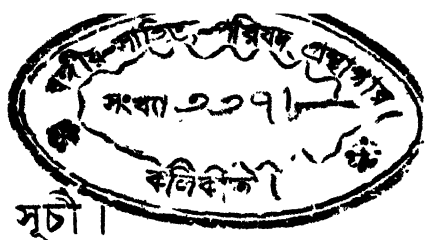 বঙ্গীয়-সাহিত্য-পরিষদ্ গ্রন্থাগার
সংখ্যা ৩৩৭১
কলিকাতা।
সূচী।